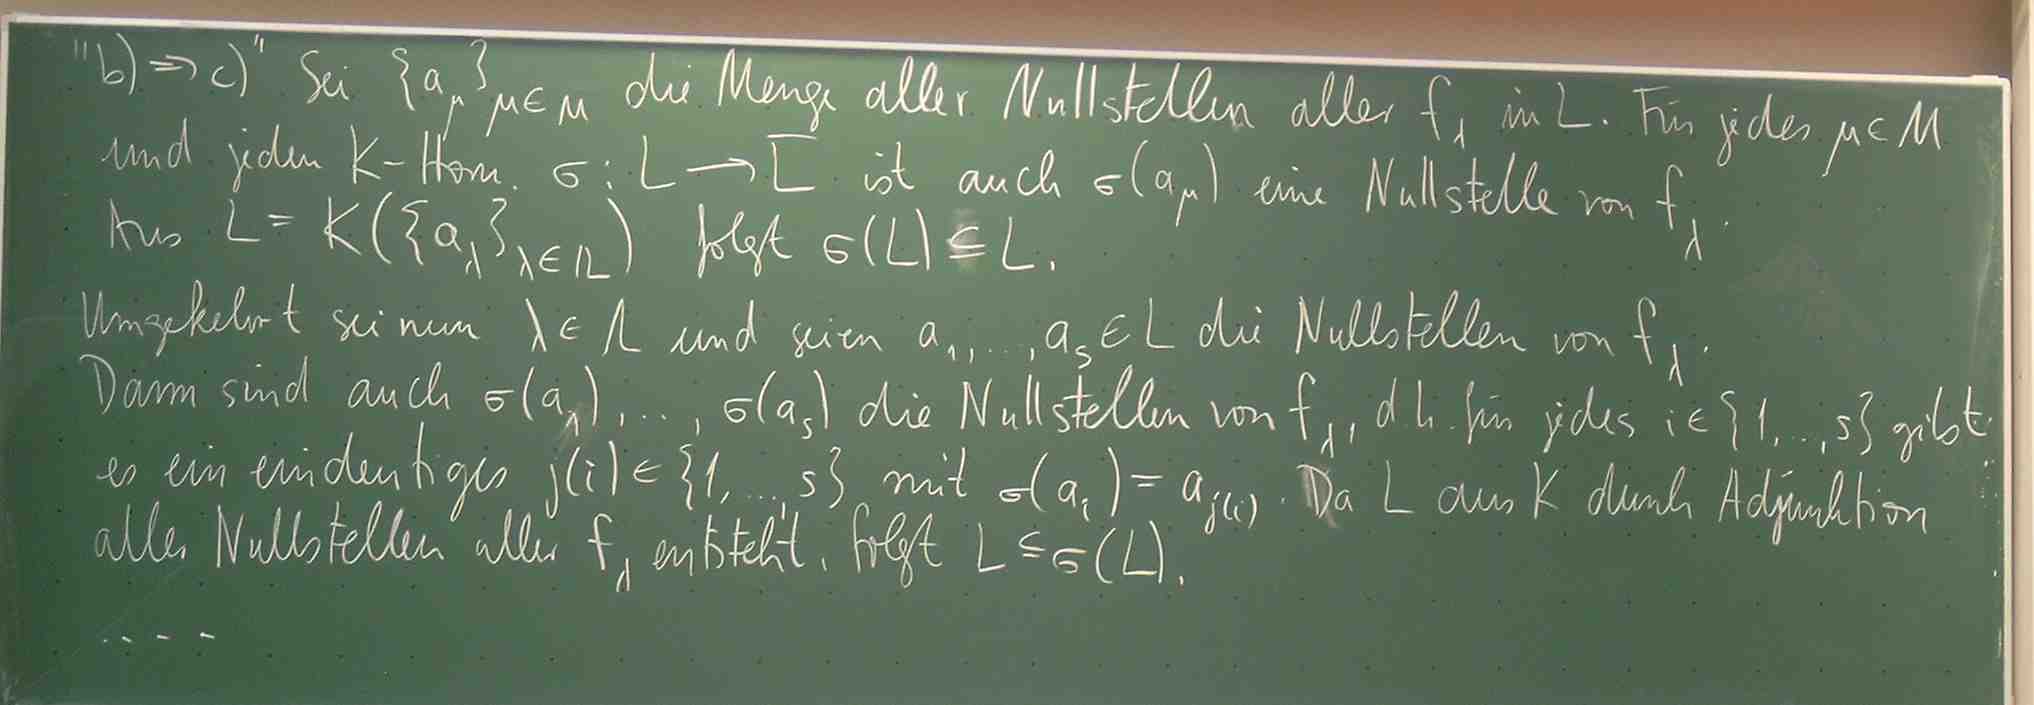 "b) ⇒ c)" Sei {a_μ}_{μ∈M} die Menge aller Nullstellen aller f_λ in L. Für jedes μ∈M
und jeden K-Hom. σ: L → L̅ ist auch σ(a_μ) eine Nullstelle von f_λ.
Aus L = K({a_λ}_{λ∈Λ}) folgt σ(L) ⊆ L.
Umgekehrt sei nun λ∈Λ und seien a_1,...,a_s ∈ L die Nullstellen von f_λ.
Dann sind auch σ(a_1),...,σ(a_s) die Nullstellen von f_λ, d.h. für jedes i∈{1,...,s} gibt
es ein eindeutiges j(i)∈{1,...,s} mit σ(a_i) = a_{j(i)}. Da L aus K durch Adjunktion
aller Nullstellen aller f_λ entsteht, folgt L ⊆ σ(L).
....